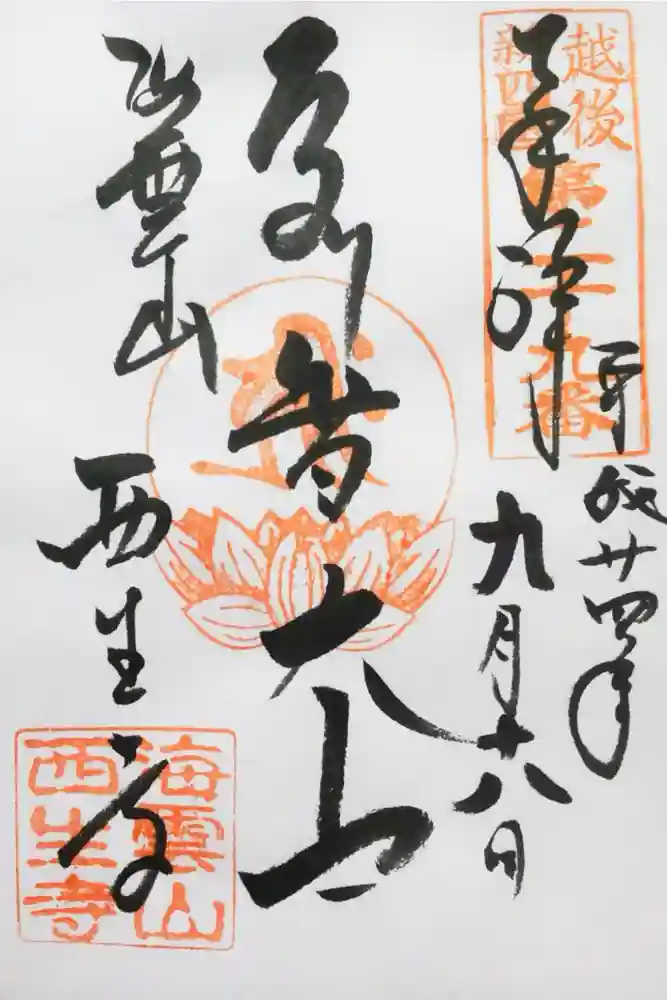 越後
新四國
第二九番
奉拝
平成廿四年
九月十八日
大士
海雲山
西生寺
海雲山
西生寺